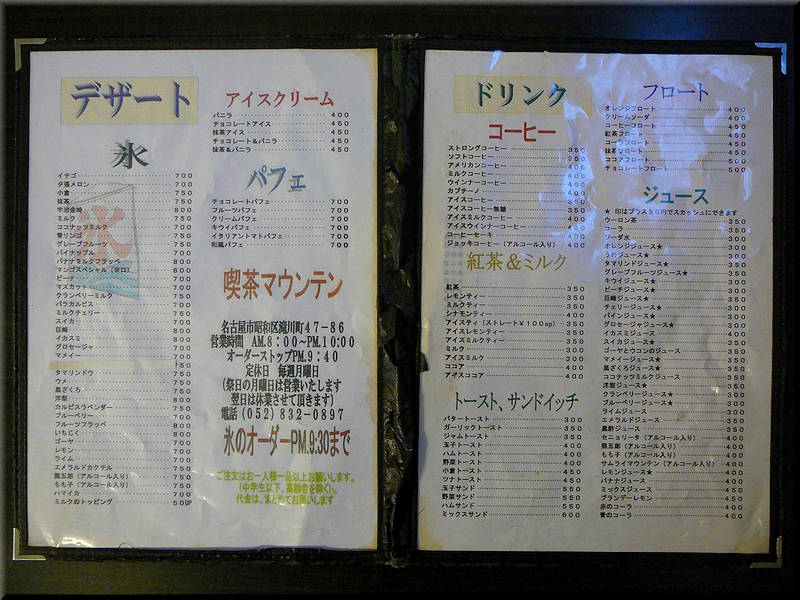 デザート
氷
イチゴ 700
夕張メロン 700
小倉 750
抹茶 750
宇治金時 800
ミルク 750
ココナッツミルク 700
青リンゴ 750
グレープフルーツ 700
パイナップル 700
バナナミルクフラッペ 800
マンゴスペシャル(辛口) 800
ピーチ 700
マスカット 700
クランベリーミルク 750
パラカルピス 700
ミルクチェリー 750
スイカ 700
巨峰 700
イカスミ 800
グロセージャ 700
マメイー 750
タマリンドウ 750
ウメ 750
黒ざくろ 700
洋梨 750
カルピスラベンダー 750
ブルーベリー 700
フルーツフラッペ 800
いちじく 800
ゴーヤ 700
レモン 700
ライム 700
エメラルドカクテル 750
熊五郎(アルコール入り) 750
もも子(アルコール入り) 700
ハマイカ 700
ミルクのトッピング 50UP
アイスクリーム
バニラ 400
チョコレートアイス 450
抹茶アイス 450
チョコレート&バニラ 450
抹茶&バニラ 450
パフェ
チョコレートパフェ 700
フルーツパフェ 700
クリームパフェ 700
キウイパフェ 700
イタリアントマトパフェ 700
和風パフェ 700
喫茶マウンテン
名古屋市昭和区滝川町47-86
営業時間 AM.8:00~PM.10:00
オーダーストップPM.9:40
定休日 毎週月曜日
(祭日の月曜日は営業いたします
翌日は休業させて頂きます)
電話(052)832-0897
氷のオーダーPM.9:30まで
ご注文はお一人様一品以上お願いします。
(中学生以下、高齢者を除く)
代金は、まとめてお願いします
ドリンク
コーヒー
ストロングコーヒー 350
ソフトコーヒー 350
アメリカンコーヒー 350
ミルクコーヒー 400
ウインナーコーヒー 400
カプチーノ 400
アイスコーヒー 350
アイスコーヒー無糖 350
アイスミルクコーヒー 400
アイスウインナーコーヒー 400
コーヒーセーキ 400
ジョッキコーヒー(アルコール入り) 400
紅茶&ミルク
紅茶 350
レモンティー 350
ミルクティー 350
シナモンティー 400
アイスティ(ストレート¥100up) 350
アイスレモンティー 350
アイスミルクティー 350
ミルク 300
アイスミルク 300
ココア 400
アイスココア 400
トースト、サンドイッチ
バタートースト 350
ガーリックトースト 350
ジャムトースト 350
玉子トースト 400
ハムトースト 400
野菜トースト 400
小倉トースト 450
ツナトースト 450
玉子サンド 550
野菜サンド 550
ハムサンド 550
ミックスサンド 600
フロート
オレンジフロート 400
クリームソーダ 400
コーヒーフロート 400
紅茶フロート 400
コーラフロート 400
抹茶フロート 400
ココアフロート 500
チョコレートフロート 500
ジュース
★ 印はプラス50円でスカッシュにできます
ウーロン茶 300
コーラ 300
ソーダ水 300
オレンジジュース★ 300
うめジュース★ 350
タマリンドジュース★ 350
グレープフルーツジュース★ 350
キウイジュース★ 350
ピーチジュース★ 350
巨峰ジュース★ 350
チェリージュース★ 350
パインジュース★ 350
グロセージャジュース★ 350
イカスミジュース 400
スイカジュース★ 350
ゴーヤとウコンのジュース 350
マメイージュース★ 350
黒ざくろジュース★ 350
ココナッツミルクジュース 350
洋梨ジュース★ 350
クランベリージュース★ 350
ブルーベリージュース★ 350
ライムジュース 350
エメラルドジュース 350
黒酢ジュース 350
セニョリータ(アルコール入り) 400
熊五郎(アルコール入り) 400
もも子(アルコール入り) 400
サムライマウンテン(アルコール入り) 400
レモンジュース★ 400
バナナジュース 400
ミックスジュース 450
ブランデーレモン 450
赤のコーラ 400
青のコーラ 400